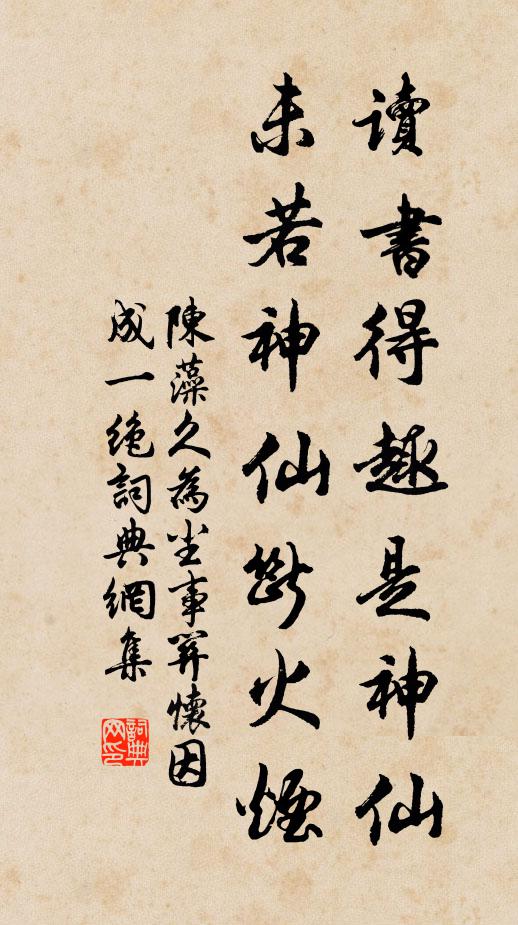 讀書得趣是神仙
未若神仙斷火煙
陳藻久為尘事羿懷因
成一绝詞典網集
詞典网印